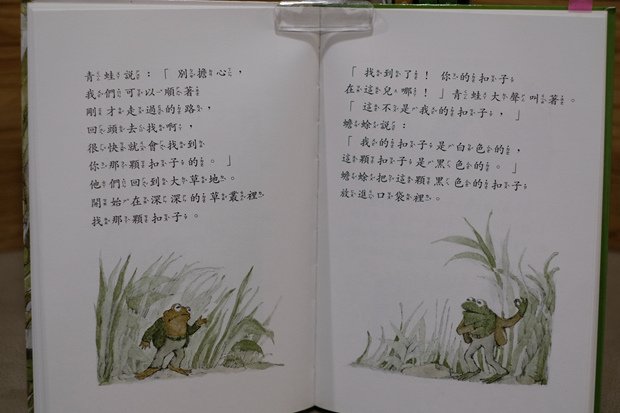 青蛙說：「別擔心，
我們可以順著
剛才走過的路，
回頭去找啊，
很快就會找到
你那顆扣子的。」
他們回到大草地。
開始在深深的草叢裡
找那顆扣子。
「找到了！你的扣子
在這兒哪！」青蛙大聲叫著。
「這不是我的扣子，」
蟾蜍說：
「我的扣子是白色的，
這顆扣子是黑色的。」
蟾蜍把這顆黑色的扣子
放進口袋裡。